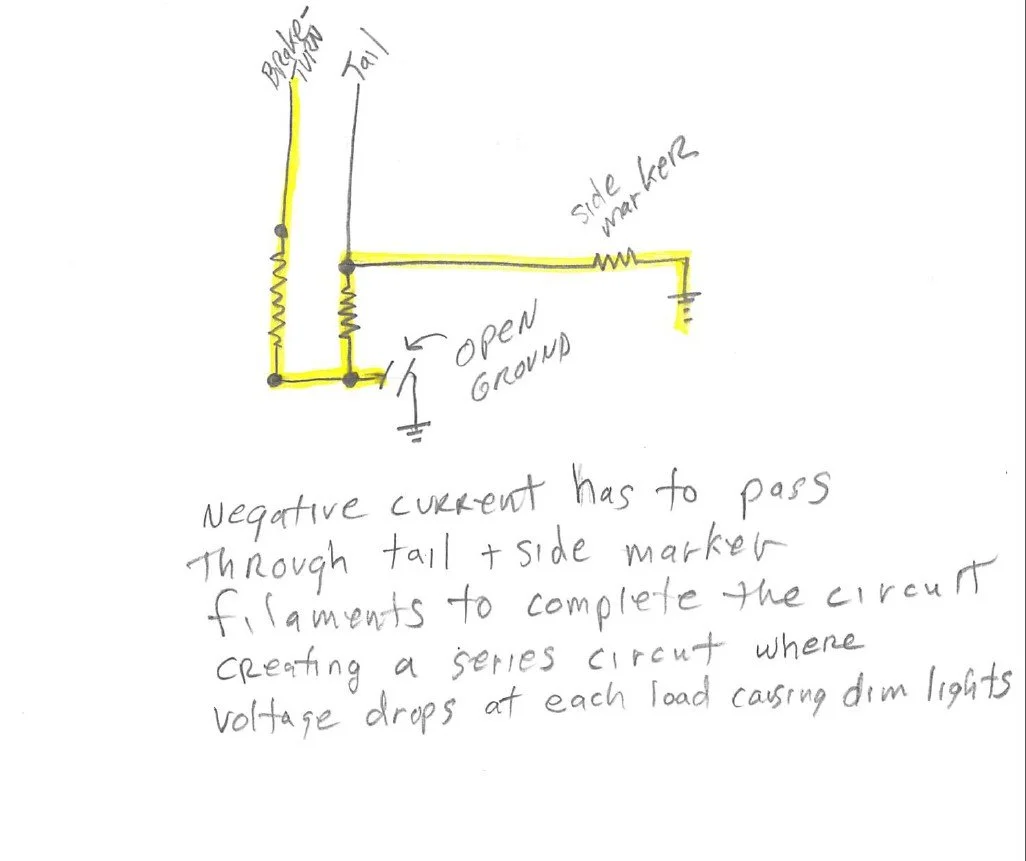 BRake-
TURN
Tail
side
markeR
OPEN
GROUND
Negative cuRRent has to pass
ThRough tail + side marker
filaments to complete the circuit
cReating a series circut where
voltage drops at each load causing dim lights